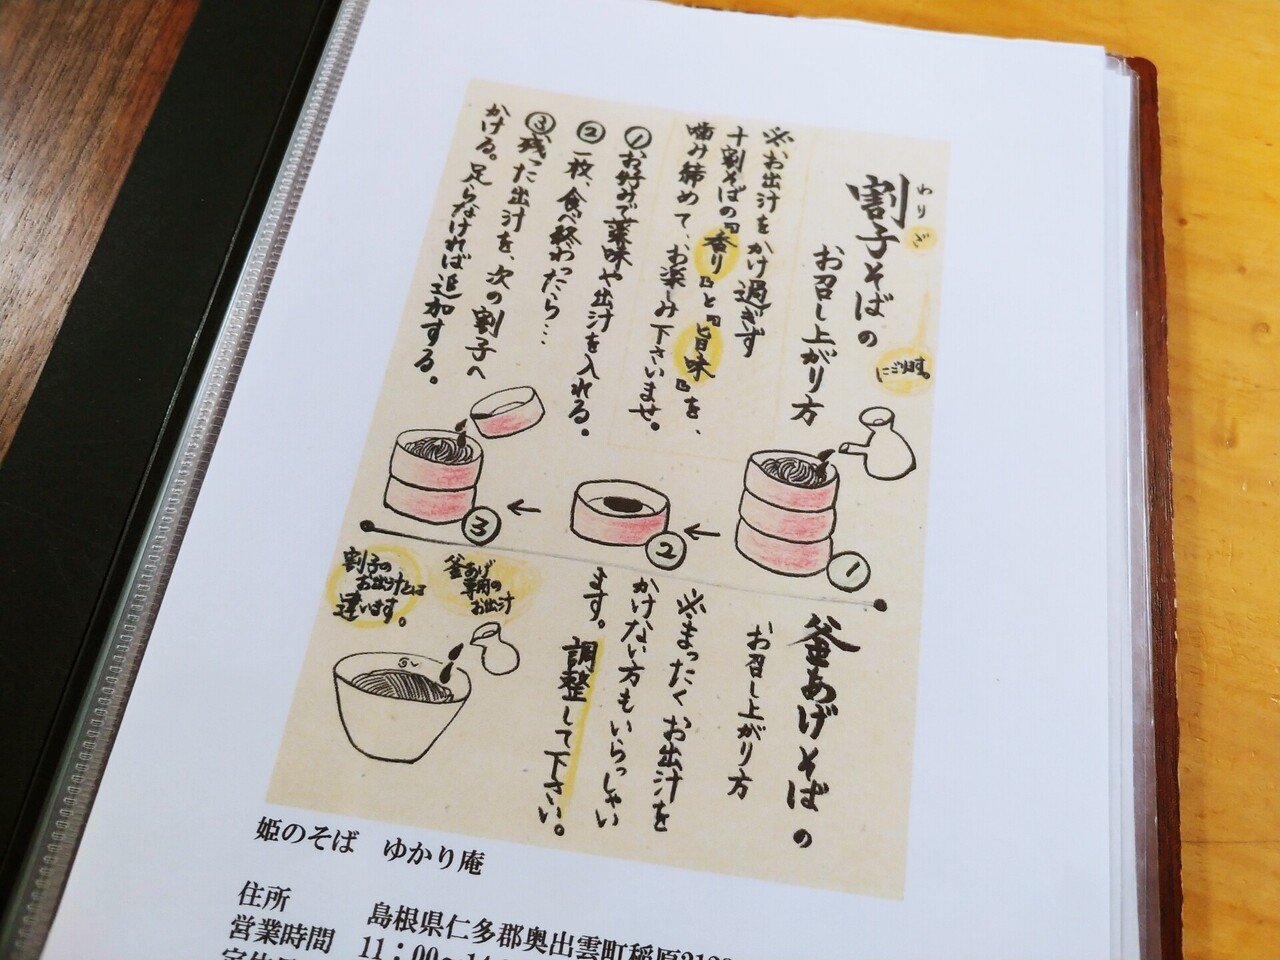 割子そばの
わりご
にごります。
お召し上がり方
※お出汁をかけ過ぎず
十割そばの『香り』と『旨味』を、
噛み締めて、お楽しみ下さいませ。
①お好みで薬味や出汁を入れる。
②一枚、食べ終わったら…
③残った出汁を、次の割子へ
かける。足らなければ追加する。
①
②
③
釜あげそばの
お召し上がり方
※まったくお出汁を
かけない方もいらっしゃい
ます。調整して下さい。
釜あげ
専用の
お出汁
割子の
お出汁とは
違います。
姫のそば ゆかり庵
住所 島根県仁多郡奥出雲町稲原
営業時間 11:00~14